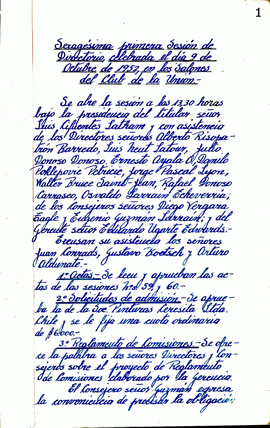 1
Sexagésima primera Sesión de
Directorio, celebrada el día 9 de
Octubre de 1957, en los Salones
del Club de la Unión.-
Se abre la sesión a las 13.30 horas
bajo la presidencia del titular señor
Luis Cifuentes Latham y con asistencia
de los Directores señores Alberto Risopa-
trón Barredo, Luis Neut Latour, Julio
Donoso Donoso, Ernesto Ayala O., Danilo
Poklepovic Petricic, Jorge Pascal Lyon,
Walter Bruce Saint-Jean, Rafael Donoso
Carrasco, Osvaldo Larraín Echeverría;
de los Consejeros señores Diego Vergara
Eagle y Eugenio Guzmán Larraín; y del
Gerente señor Edmundo Ugarte Edwards.-
Excusan su asistencia los señores
Juan Konrads, Gustavo Boetsch y Arturo
Aldunate.-
1.° Actas.- Se leen y aprueban las ac-
tas de las sesiones N°s 59 y 60.-
2.° Solicitudes de admisión.- Se aprue-
ba la de la Soc. Pinturas Teresita Ltda.
Chile y se le fija una cuota ordinaria
de $6000.-
3.° Reglamento de Comisiones.- Se ofre-
ce la palabra a los señores Directores y Con-
sejeros sobre el proyecto de Reglamento
de Comisiones elaborado por la Gerencia.
El Consejero señor Guzmán expresa
la conveniencia de precisar la obligación